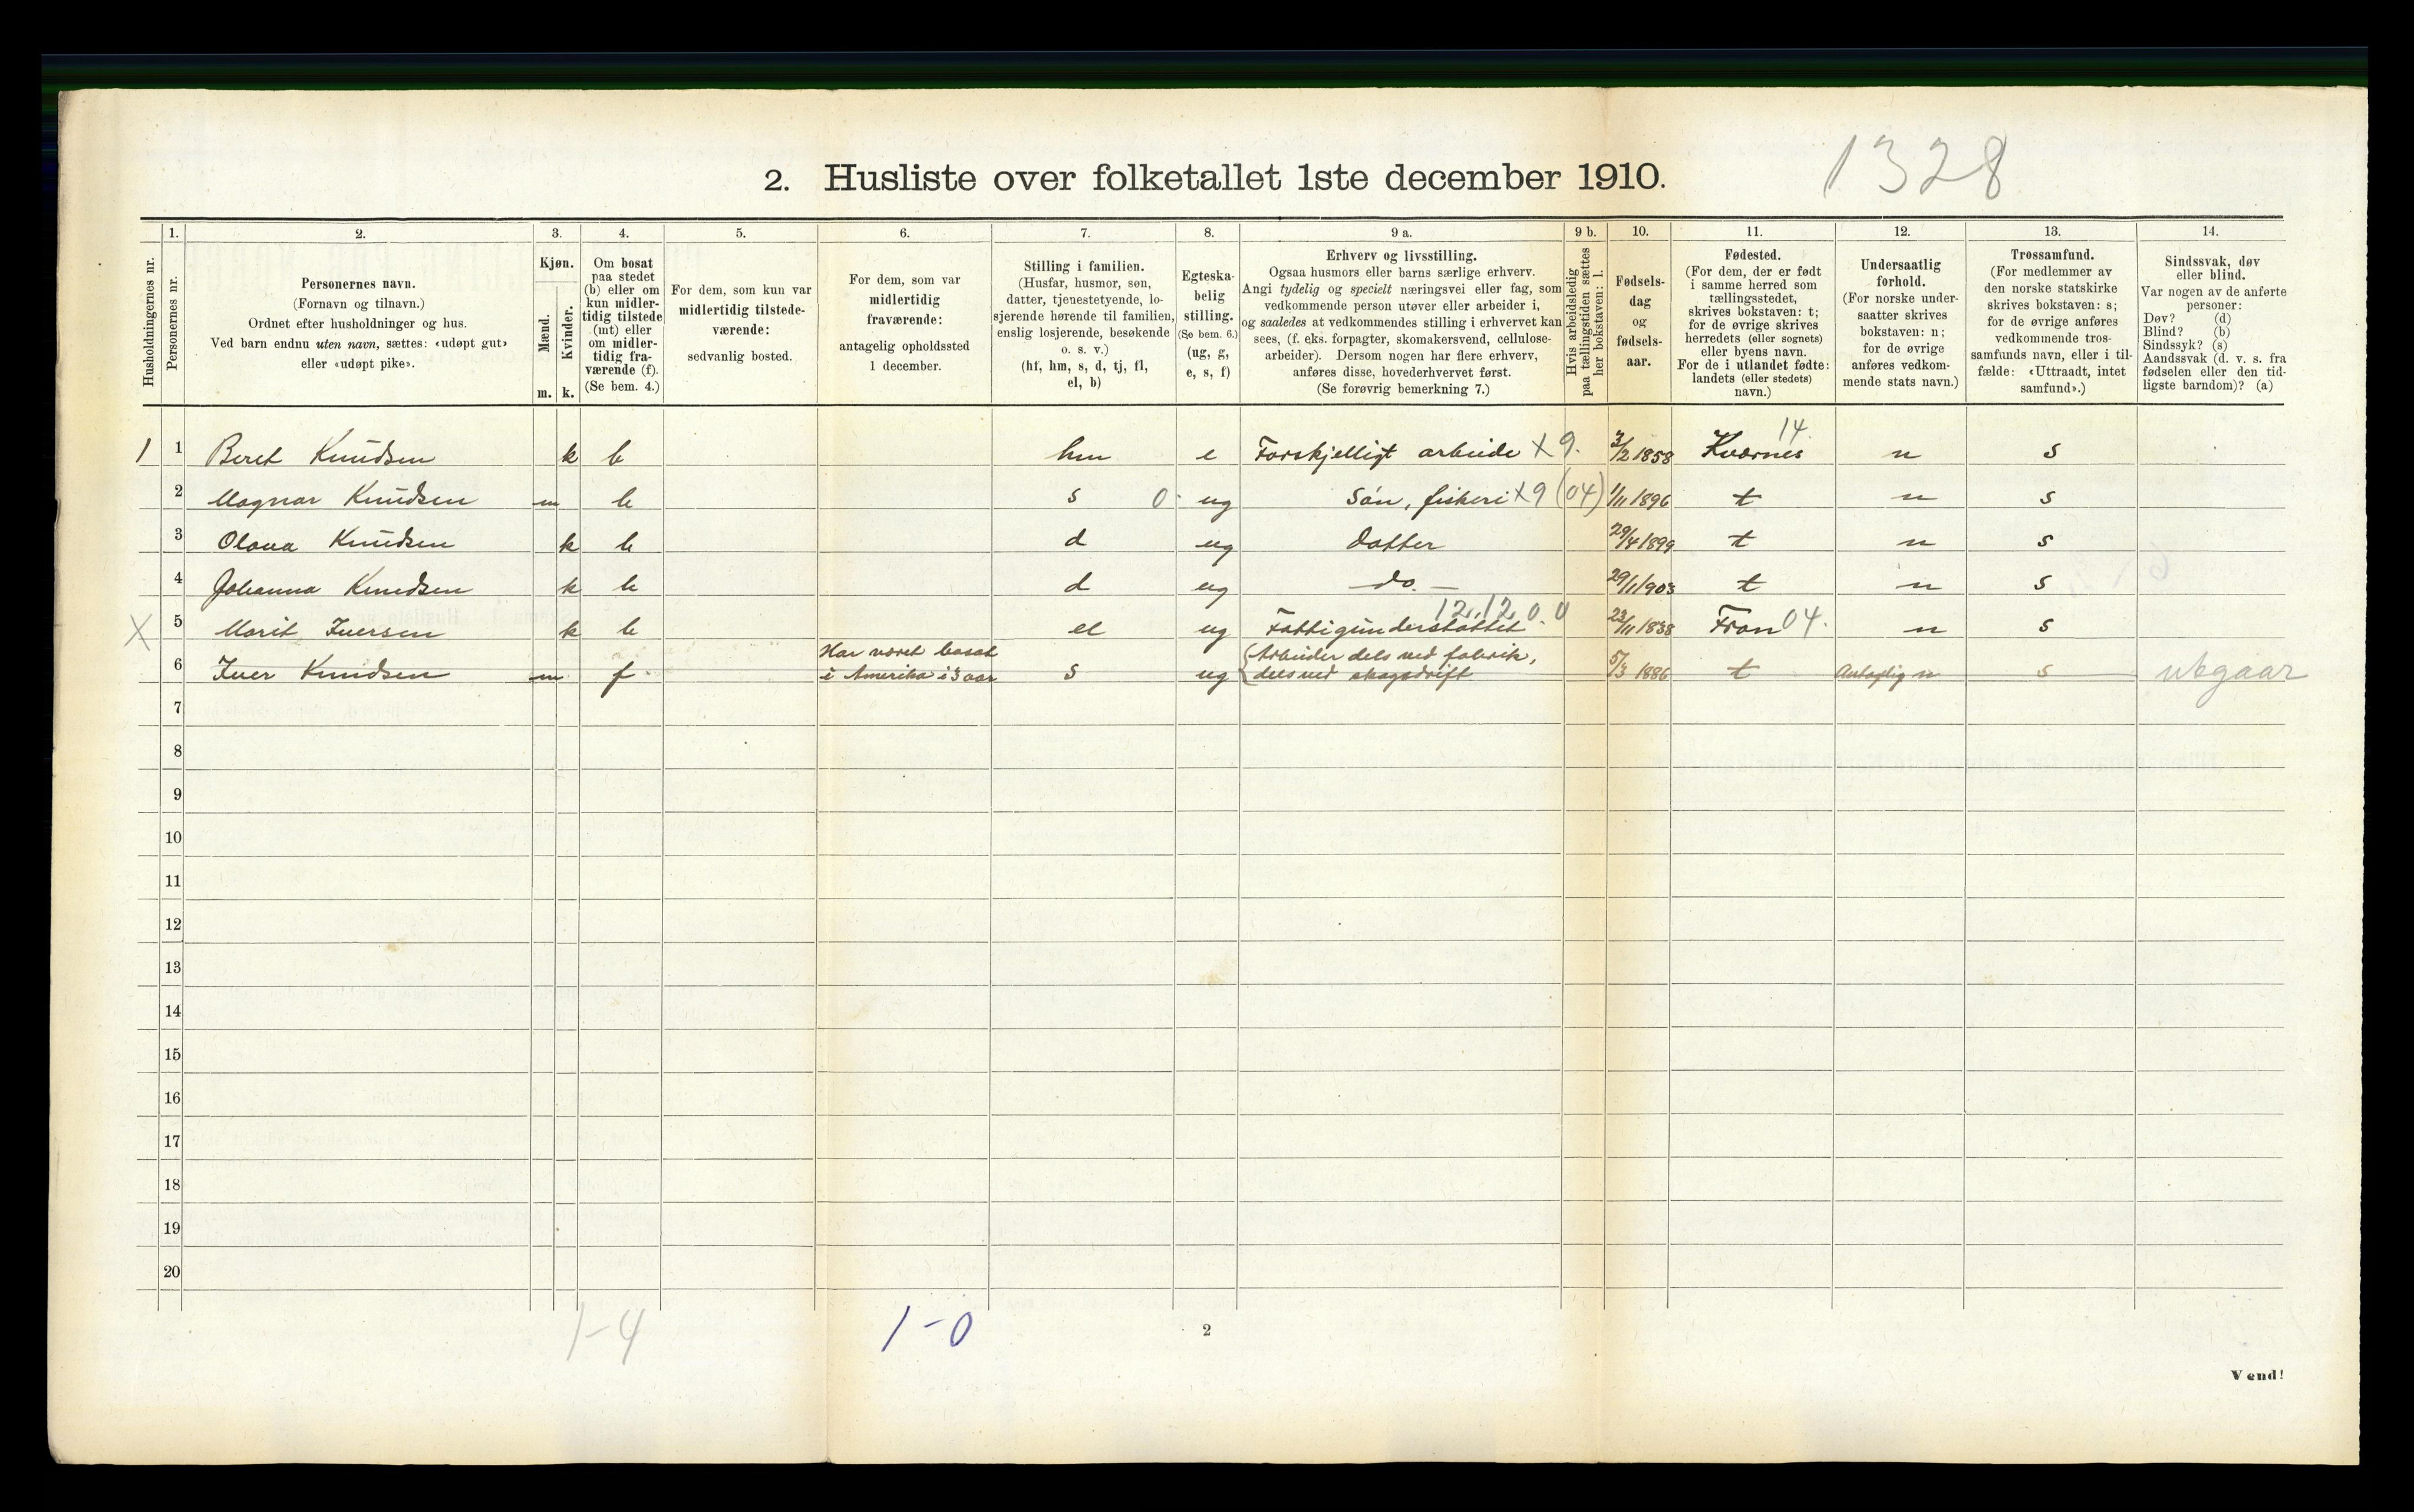 1328
2. Husliste over folketallet 1ste december 1910.
Husholdningernes nr.
1.
Personernes nr.
2.
Personernes navn.
(Fornavn og tilnavn.)
Ordnet efter husholdninger og hus.
Ved barn endnu uten navn, sættes: «udøpt gut»
eller «udøpt pike».
3.
Kjøn.
Mænd.
Kvinder.
m. k.
4.
Om bosat
paa stedet
(b) eller om
kun midler-
tidig tilstede
(mt) eller
om midler-
tidig fra-
værende (f).
(Se bem. 4.)
5.
For dem, som kun var
midlertidig tilstede-
værende:
sedvanlig bosted.
6.
For dem, som var
midlertidig
fraværende:
antagelig opholdssted
1 december.
7.
Stilling i familien.
(Husfar, husmor, søn,
datter, tjenestetyende, lo-
sjerende hørende til familien,
enslig losjerende, besøkende
o. s. v.)
(hf, hm, s, d, tj, fl,
el, b)
8.
Egteska-
belig
stilling.
(Se bem. 6.)
(ug, g,
e, s, f)
9 a.
Erhverv og livsstilling.
Ogsaa husmors eller barns særlige erhverv.
Angi tydelig og specielt næringsvei eller fag, som
vedkommende person utøver eller arbeider i,
og saaledes at vedkommendes stilling i erhvervet kan
sees, (f. eks. forpagter, skomakersvend, cellulose-
arbeider). Dersom nogen har flere erhverv,
anføres disse, hovederhvervet først.
(Se forøvrig bemerkning 7.)
9 b.
Hvis arbeidsledig
paa tællingstiden sættes
her bokstaven: l.
10.
Fødsels-
dag
og
fødsels-
aar.
11.
Fødested.
(For dem, der er født
i samme herred som
tællingsstedet,
skrives bokstaven: t;
for de øvrige skrives
herredets (eller sognets)
eller byens navn.
For de i utlandet fødte:
landets (eller stedets)
navn.)
12.
Undersaatlig
forhold.
(For norske under-
saatter skrives
bokstaven: n;
for de øvrige
anføres vedkom-
mende stats navn.)
13.
Trossamfund.
(For medlemmer av
den norske statskirke
skrives bokstaven: s;
for de øvrige anføres
vedkommende tros-
samfunds navn, eller i til-
fælde: «Uttraadt, intet
samfund».)
14.
Sindssvak, døv
eller blind.
Var nogen av de anførte
personer:
Døv? (d)
Blind? (b)
Sindssyk? (s)
Aandssvak (d. v. s. fra
fødselen eller den tid-
ligste barndom)? (a)
1 1 Beret Knudsen k b hm e Forskjelligt arbeide X 9. 3/2 1858 Kværnes 14. n s
2 Magnar Knudsen m b s 0 ug Søn, fiskeri X 9 (04) 1/11 1896 t n s
3 Olava Knudsen k b d ug Datter 29/4 1899 t n s
4 Johanna Knudsen k b d ug — do. — 29/1 1903 t n s
X 5 Marit Iversen k b el ug Fattigunderstøttet 12.12.0.0 23/11 1838 Fron 04. n s
6 Iver Knudsen m f Har været bosat
i Amerika i 3 aar s ug Arbeider dels ved fabrik,
dels ved skogsdrift 5/3 1886 t Antaglig n s utgaar
7
8
9
10
11
12
13
14
15
16
17
18
19
20
1-4
1-0
2
Vend!